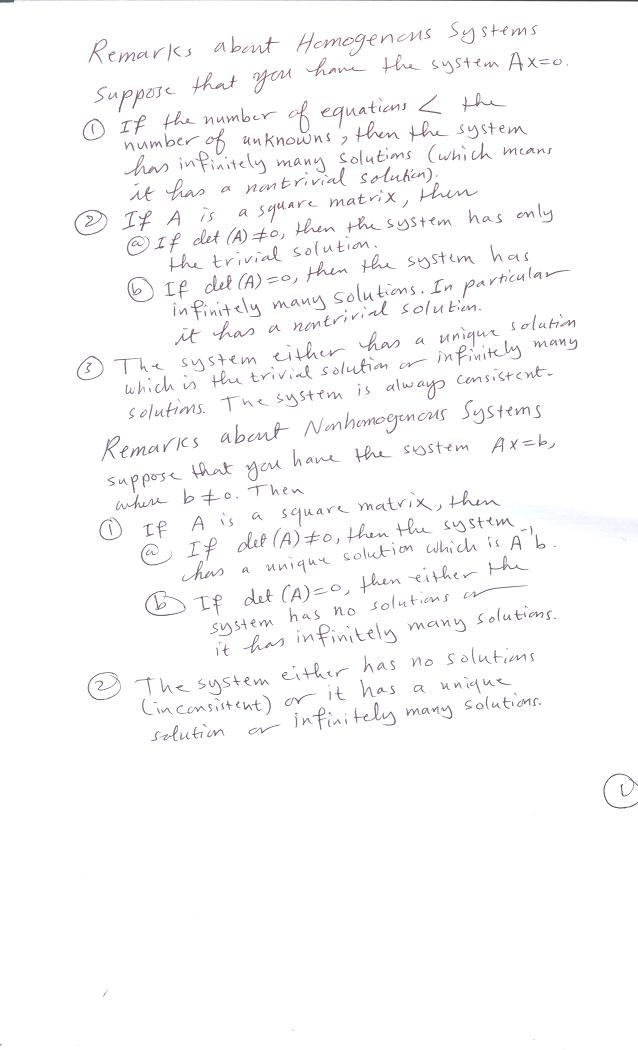 Remarks about Homogenous Systems
Suppose that you have the system Ax=0.
① If the number of equations < the
number of unknowns, then the system
has infinitely many solutions (which means
it has a nontrivial solution).
② If A is a square matrix, then
ⓐ If det (A) ≠0, then the system has only
the trivial solution.
ⓑ If det (A)=0, then the system has
infinitely many solutions. In particular
it has a nontrivial solution.
③ The system either has a unique solution
which is the trivial solution or infinitely many
solutions. The system is always consistent.
Remarks about Nonhomogenous Systems
suppose that you have the system Ax=b,
where b≠0. Then
① If A is a square matrix, then
ⓐ If det (A) ≠0, then the system
has a unique solution which is A⁻¹b.
ⓑ If det (A)=0, then either the
system has no solutions or
it has infinitely many solutions.
② The system either has no solutions
(inconsistent) or it has a unique
solution or infinitely many solutions.
①